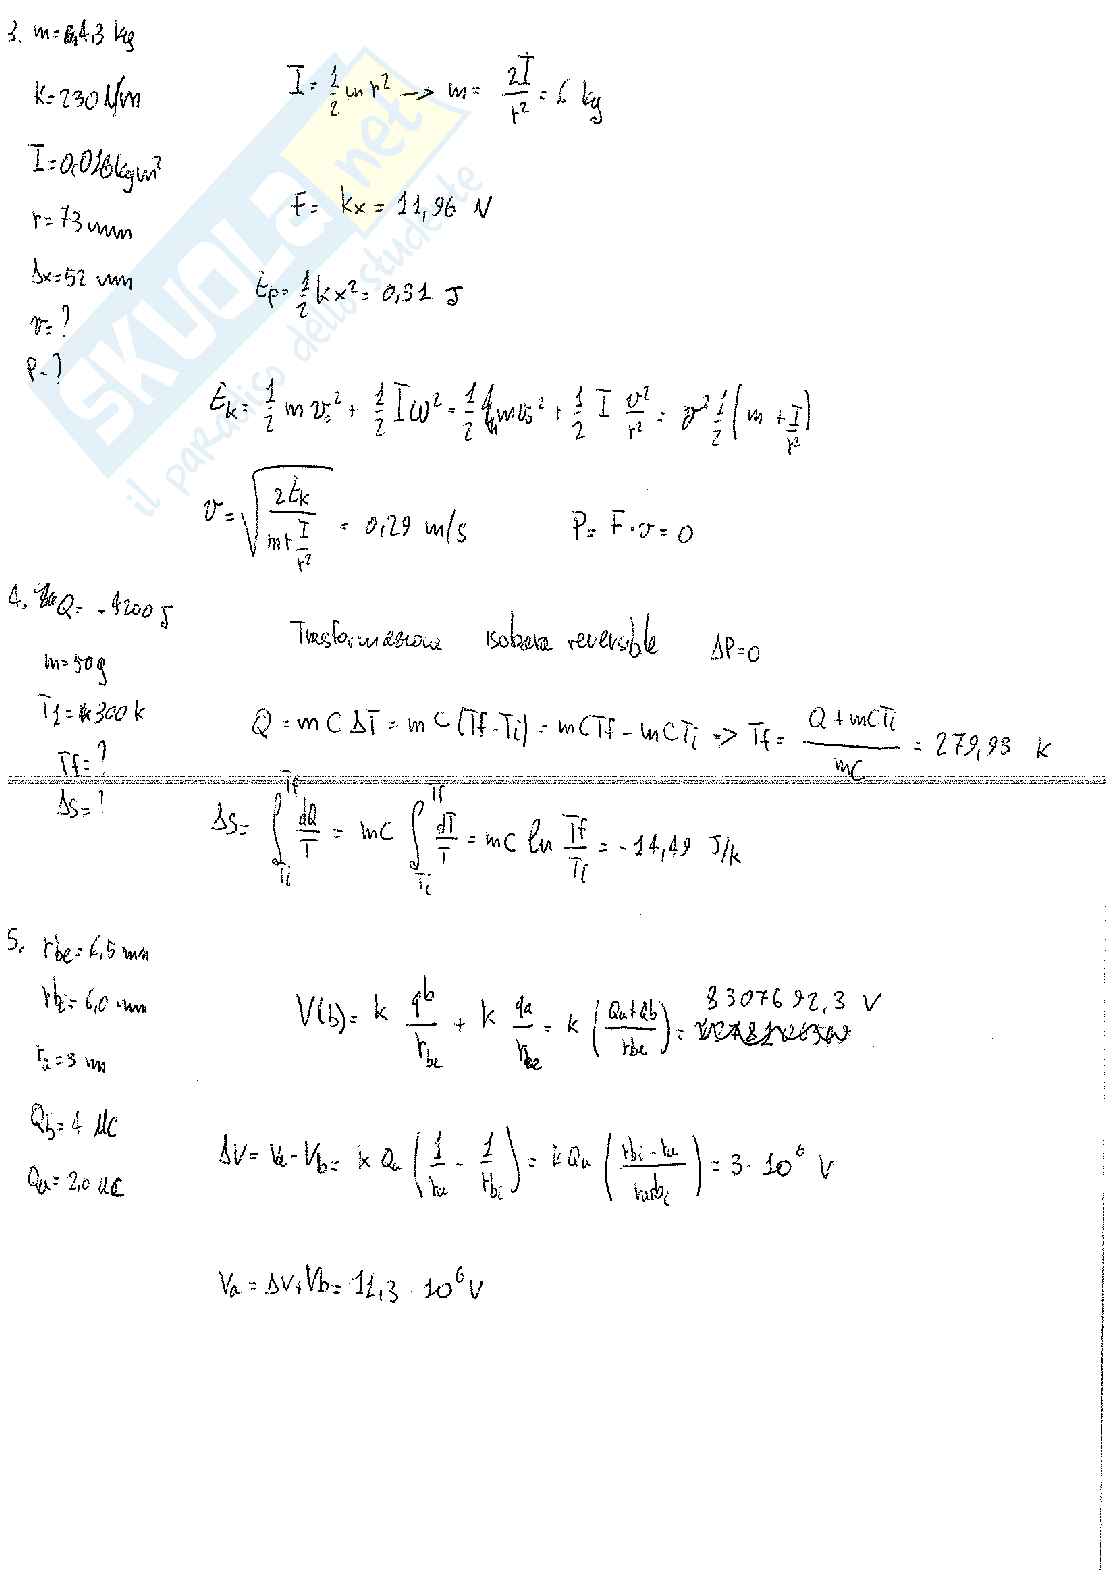 3. m=4,3 kg
K=230 N/m
I=0,016 kgm²
r=73 mm
Δx=52 mm
v=?
P=?
I = 1/2 m r² → m = 2I/r² = 6 kg
F = kx = 11,96 N
Ep = 1/2 kx² = 0,31 J
Ek = 1/2 m v² + 1/2 I ω² = 1/2 m v² + 1/2 I v²/r² = v² 1/2 (m + I/r²)
v = √(2Ek/(m + I/r²)) = 0,29 m/s P = F·v = 0
4. Q = -4200 J
m=50g
Ti=300 k
Tf=?
ΔS=?
Trasformazione isobara reversibile ΔP=0
Q = m C ΔT = m C (Tf - Ti) = mCTf - mCTi => Tf = (Q + mCTi)/mC = 279,93 K
ΔS = ∫Ti Tf dQ/T = mC ∫Ti Tf dT/T = mC ln Tf/Ti = -14,49 J/k
5. rbe = 6,5 mm
rbi = 6,0 mm
ra = 3 m
Qb = 4 μC
Qa = 2,0 μC
V(b) = k qb/rbe + k qa/rbe = k ((Qa+Qb)/rbe) = 8307692,3 V
ΔV = Va - Vb = k Qa (1/ra - 1/rbi) = k Qa ((rbi - ra)/(ra rbi)) = 3·10⁶ V
Va = ΔV + Vb = 11,3 · 10⁶ V
SKUOLA.net
il paradiso dello studente